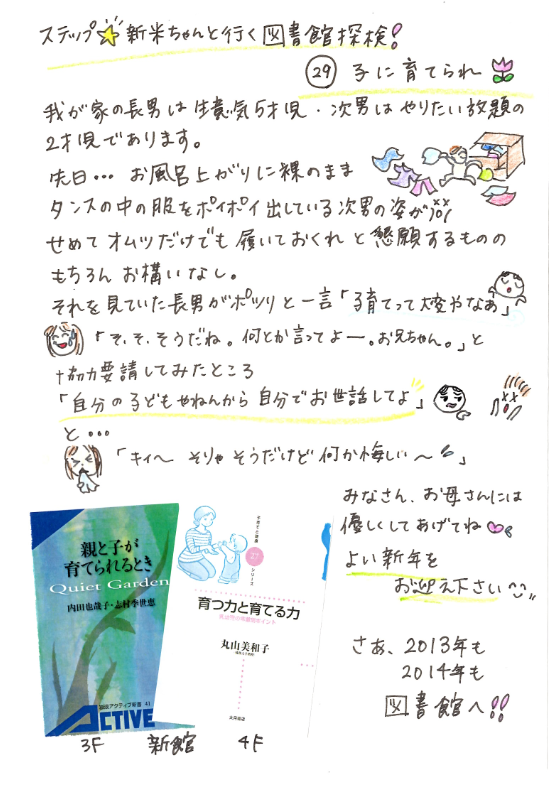 ステップ☆新米ちゃんと行く図書館探検!
㉙ 子に育てられ
我が家の長男は生意気5才児・次男はやりたい放題の
2才児であります。
先日… お風呂上がりに裸のまま
タンスの中の服をポイポイ出している次男の姿が
せめてオムツだけでも履いておくれと懇願するものの
もちろんお構いなし。
それを見ていた長男がポツリと一言「子育てって大変やなあ」
「そ、そ、そうだね。何とか言ってよー。お兄ちゃん。」と
協力要請してみたところ
「自分の子どもやねんから自分でお世話してよ」
と…
「キィ〜 そりゃそうだけど何か悔しい〜」
みなさん、お母さんには
優しくしてあげてね
よい新年を
お迎え下さい
さあ、2013年も
2014年も
図書館へ!!
親と子が
育てられるとき
Quiet Garden
内田也哉子・志村季世恵
アクティブ新書 41
ACTIVE
シリーズ
育つ力と育てる力
丸山美和子
3F 新館 4F